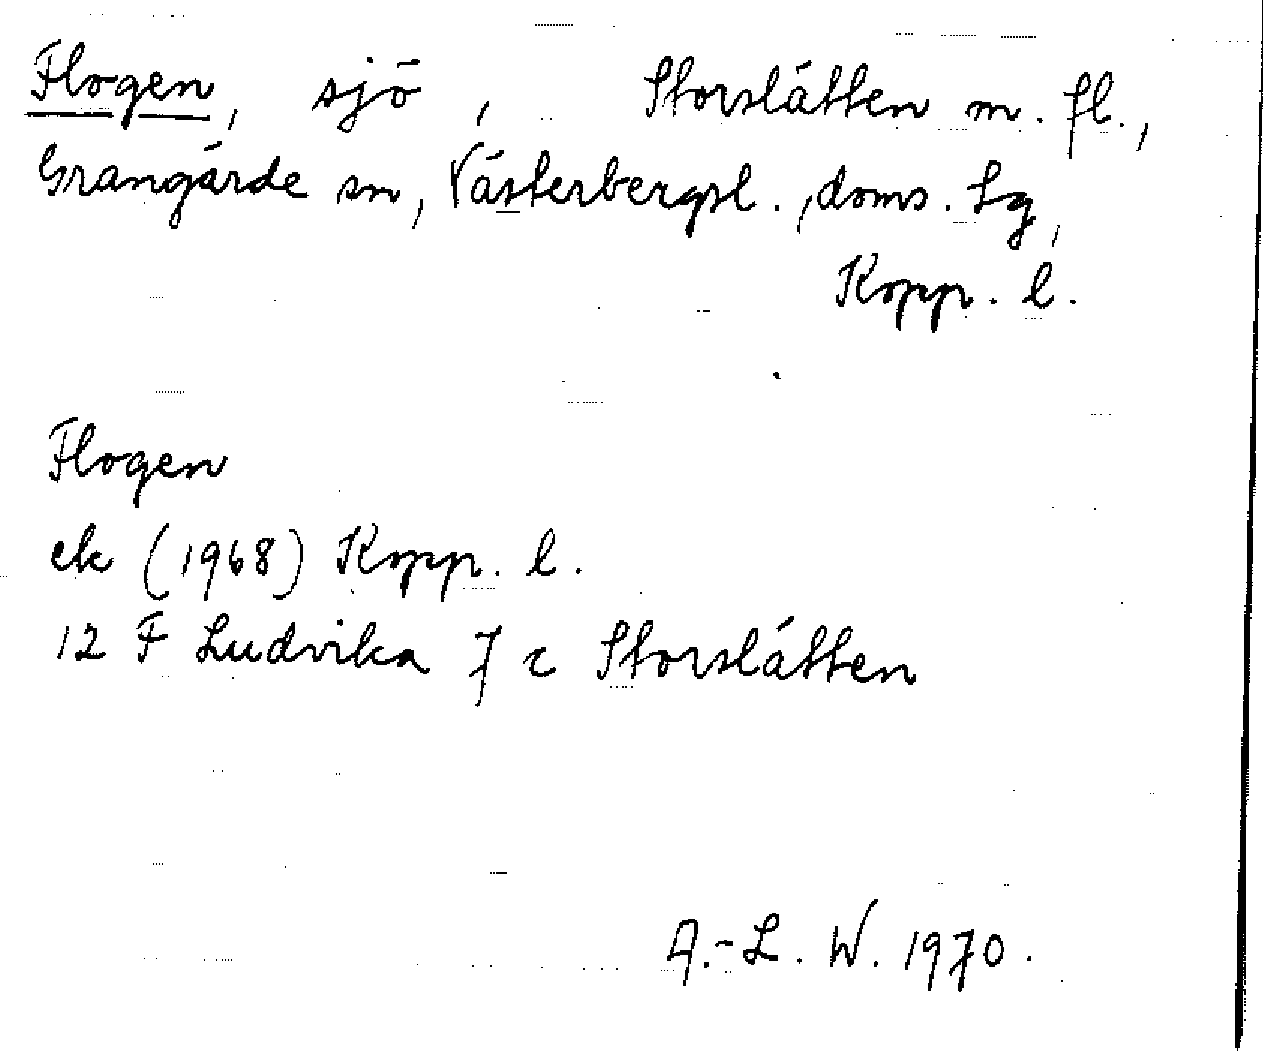 Flogen, sjö, Storslätten m. fl.,
Grangärde sn, Västerbergsl., doms. Lg,
Kopp. l.
Flogen
ek (1968) Kopp. l.
12 F Ludvika 7 c Storslätten
A.-L. W. 1970.